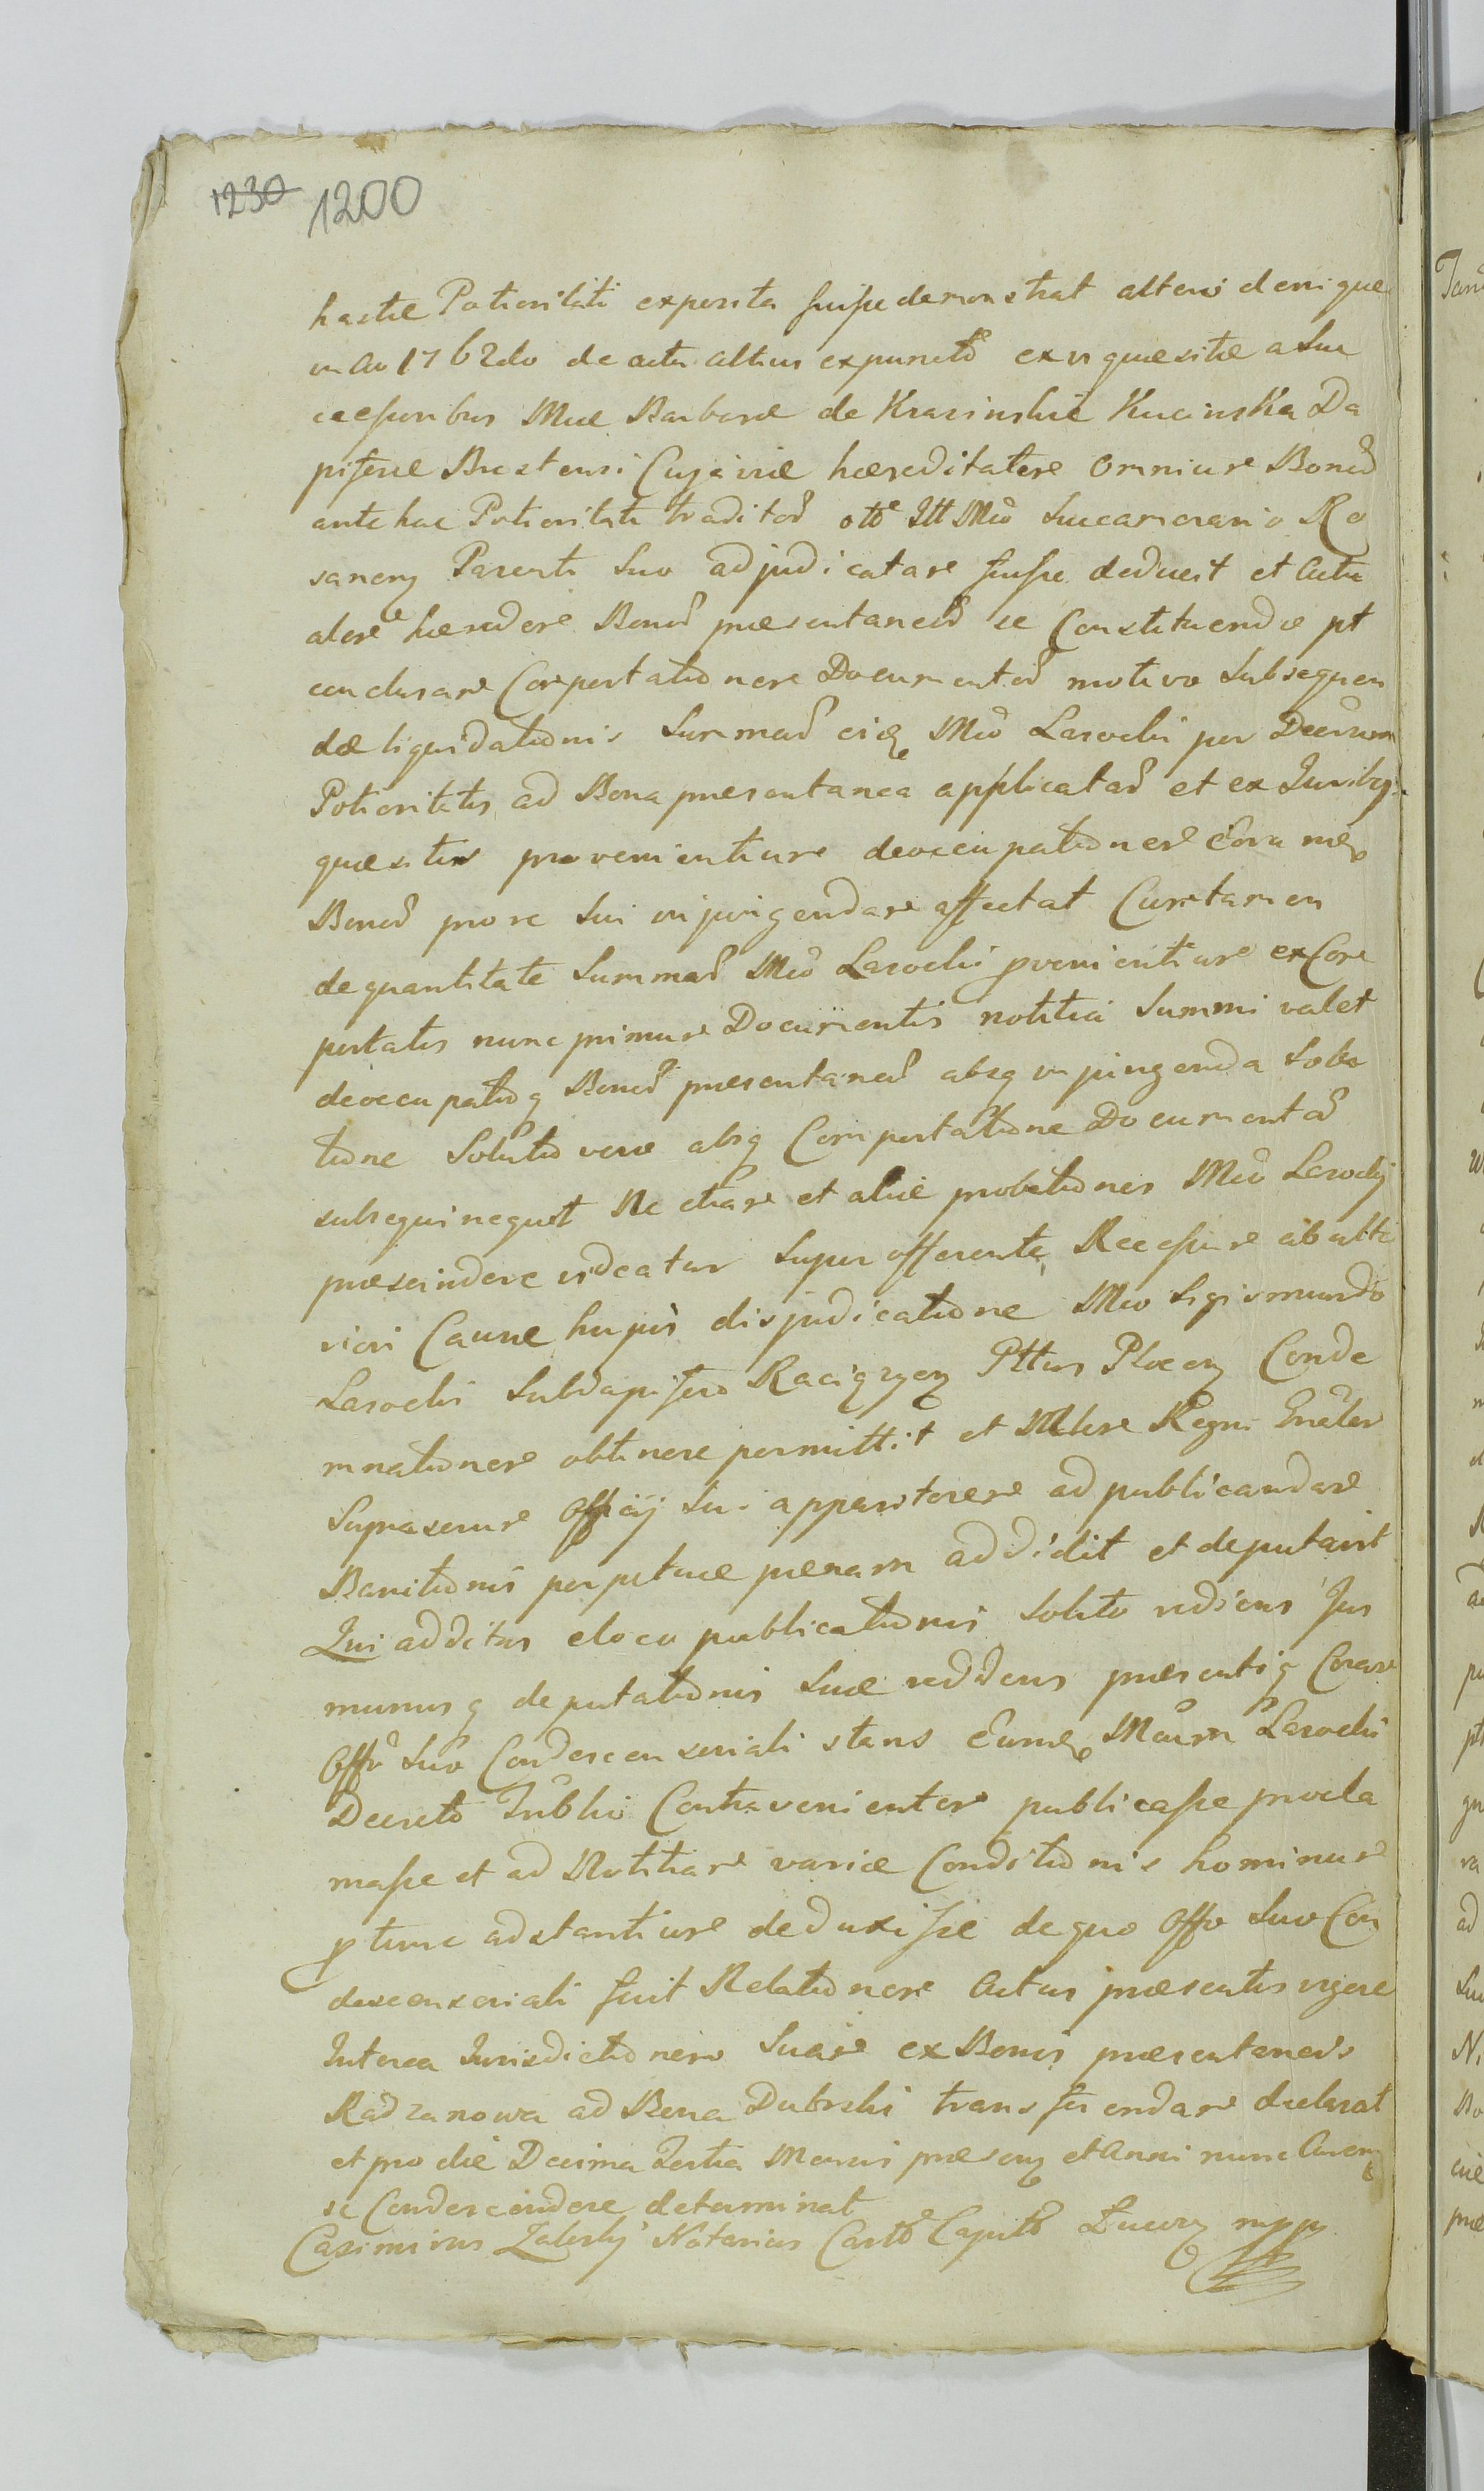 1230 1200
hactae Potioritati exposita fuisse demonstrat alterio denique
in Ao 1762do de actu altius expuncto ex vi quaesitae a Suc
cessoribus Mae Barbarae de Krasinskie Kucinska Da
piferae Brestensi Cujaviae haereditatem omnium Bonor
ante hac Potioritati traditor otte Ill Mco Succamerario Ro
sanen Parenti Suo adjudicatam fuisse deducit et Actu
alem haeredem Bonor praesentaneor se Constituendo pt
conclusam Comportationem Documentor motivo Subsequen
dae liquidationis Summar eidem Mco Lasocki per Decretum
Potioritatis ad Bona praesentanea applicatar et ex Juribq
quaesitis provenientium deoccupationem Eorumdem
Bonor pro re Sui injungendam affectat Cum tamen
de quantitate Summar Mco Lasocki pvenientium ex Com
portatis nunc primum Documentis notitia Summi valet
deoccupatioq Bonor praesentaneor absq injungenda Solu
tione Solutio vero absq Comportatione Documentor
subsequi nequit Ne etiam et aliae probationes Mco Lasocki
praescindere videatur Super offerente Recessum ab ulte
riori Causae hujus disjudicatione Mco Sigismundo
Lasocki Subdapifero Raciązen Pttus Plocen Conde
mnationem obtinere permittit et Mlem Regni Gnalem
Suprascrum Officij Sui apparitorem ad publicandam
Banitionis perpetuae paenam addidit et deputavit
Qui additus e loco publicationis Solito rediens Jus
munusq deputationis Suae reddens praesentiq Coram
Offo Suo Condescensoriali stans Eumdem Mcum Lasocki
Decreto Jublio Contravenientem publicasse procla
masse et ad Notitiam variae Conditionis hominum
p tunc adstantium deduxisse de quo Offo Suo Con
descensoriali fecit Relationem Actus praesentis vigore
Interea Jurisdictionem Suam ex Bonis praesentaneis
Radzanowa ad Bona Dubrski transferendam declarat
et pro die Decima Tertia Mensis praesen et Anni nunc Curen
se Condescendere determinat
Casimirus Zaleski Notarius Castr Capit mpp